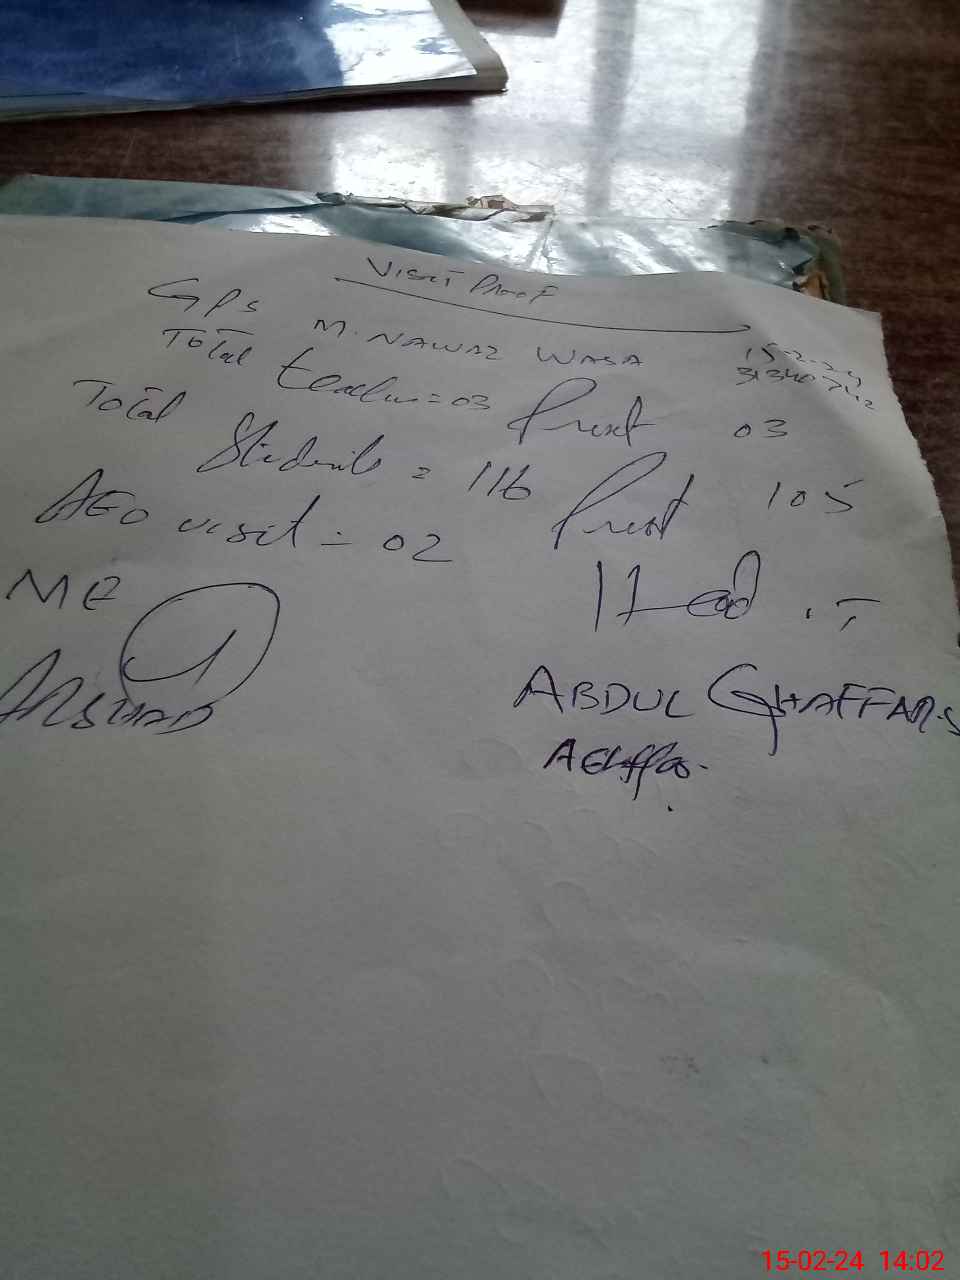 Visit Proof
GPS M. NAWAZ WASA 15-2-24
Total teacher = 03 Present 03
Total Students = 116 Present 105
AEO visit = 02
Head :-
ME
ARSHAD
ABDUL GHAFFAR
15-02-24 14:02